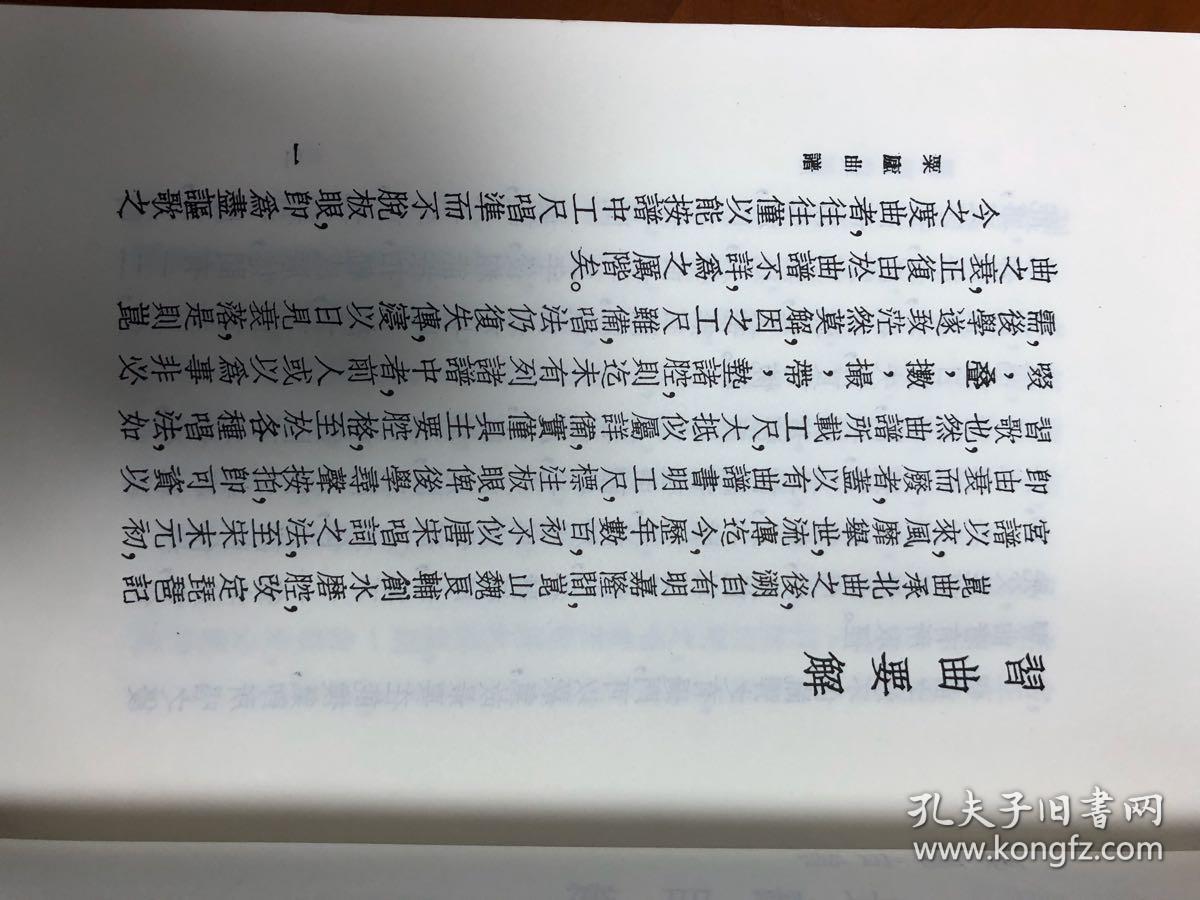 習曲要解
崑曲承北曲之後,溯自有明嘉隆間,崑山魏良輔創水磨腔,改定琵琶記
宮譜以來,風靡舉世,流傳迄今,歷年數百,初不似唐宋唱詞之法,至宋末元初,
卽由衰而廢者,蓋以有曲譜書明工尺,標注板眼,俾後學尋聲按拍,卽可資以
習歌也,然曲譜所載工尺,大抵似屬詳備,實僅具主要腔格,至於各種唱法,如
啜,疊,擻,撮,帶,墊諸腔,則迄未有列諸譜中者,前人或以爲事非必
需,後學遂致茫然莫解,因之工尺雖備,唱法仍復失傳,寖以日見衰落,是則崑
曲之衰,正復由於曲譜不詳,爲之厲階矣。
今之度曲者,往往僅以能按譜中工尺唱準,而不脫板眼,卽爲盡謳歌之
粟廬曲譜
一
孔夫子旧书网
www.kongfz.com